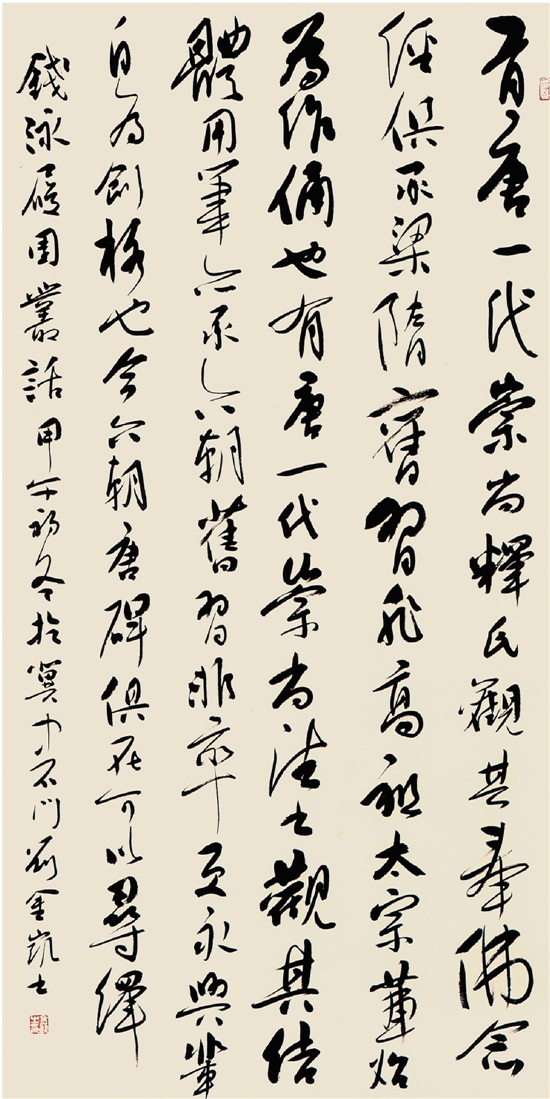 有唐一代崇尚釋氏觀其奉佛念
經俱承梁隋舊習非高祖太宗輩始
為作俑也有唐一代崇尚法書觀其結
體用筆亦承六朝舊習非率更永興輩
自為創格也今六朝唐碑俱在可以尋繹
錢泳履園叢話甲午初冬於冀中石門劉金凱書